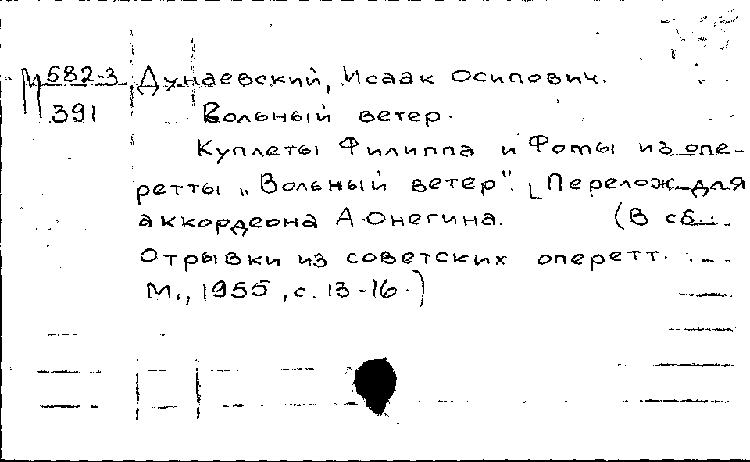 М 582-3 Дунаевский, Исаак Осипович.
391 Вольный ветер.
Куплеты Филиппа и Фомы из опе-
ретты „Вольный ветер". [Перелож. для
аккордеона А. Онегина. (В сб.:
Отрывки из советских оперетт.
М., 1955, с. 13-16.)